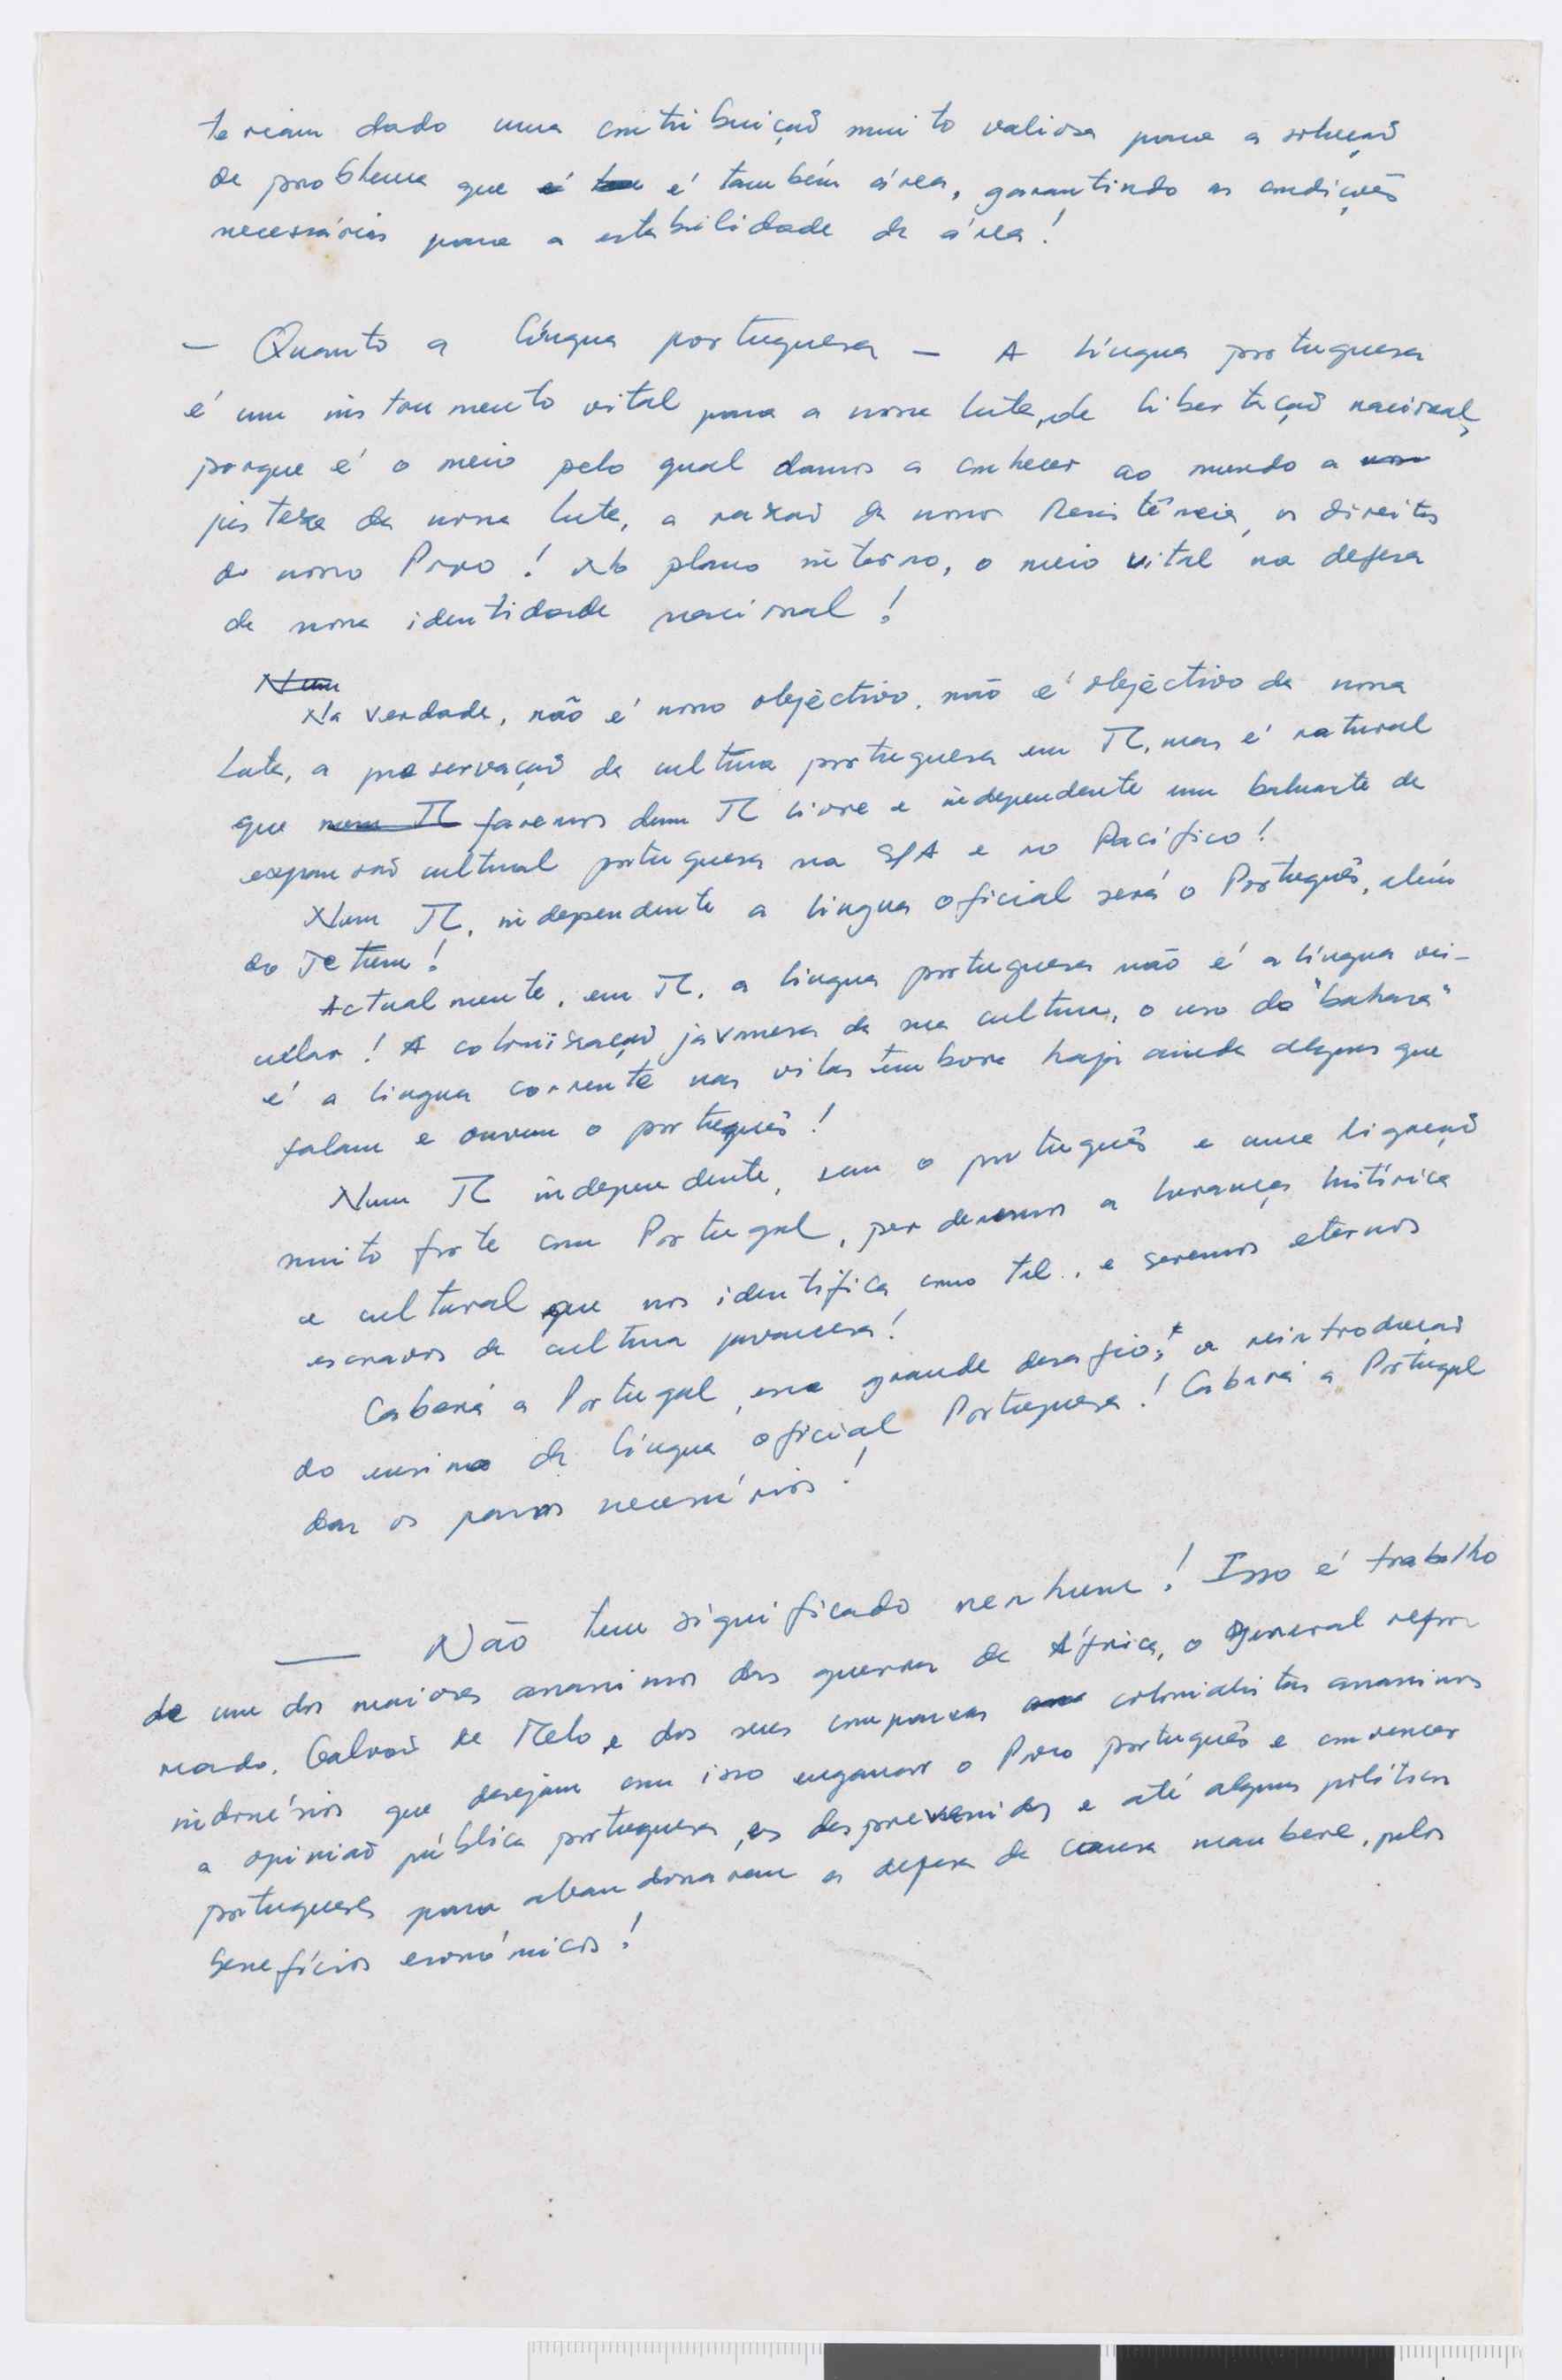 teriam dado uma contribuição muito valiosa para a solução
de problema que é também área, garantindo as condições
necessárias para a estabilidade da área!
— Quanto a língua portuguesa — A língua portuguesa
é um instrumento vital para a nossa luta, de libertação nacional,
porque é o meio pelo qual damos a conhecer ao mundo a
justeza da nossa luta, a razão da nossa Resistência, os direitos
do nosso Povo! No plano interno, o meio vital na defesa
da nossa identidade nacional!
Num
Na verdade, não é nosso objectivo, não é objectivo da nossa
Luta, a preservação da cultura portuguesa em TL, mas é natural
que num TL faremos dum TL livre e independente um baluarte de
expansão cultural portuguesa na S/A e no Pacífico!
Num TL, independente a língua oficial será o Português, além
do Tetum!
Actualmente, em TL, a língua portuguesa não é a língua vei-
cular! A colonização javanesa da sua cultura, o uso do "bahasa"
é a língua corrente nas vilas embora haja ainda alguns que
falam e ouvem o português!
Num TL independente, sem o português e uma ligação
muito forte com Portugal, perderemos a herança histórica
e cultural que nos identifica como tal, e seremos eternos
escravos da cultura javanesa!
Caberá a Portugal, esse grande desafio; a reintrodução
do ensino da língua oficial Portuguesa! Caberá a Portugal
dar os passos necessários!
— Não tem significado nenhum! Isso é trabalho
de um dos maiores assassinos das guerras de África, o general refor-
mado, Galvão de Melo, e dos seus comparsas colonialistas assassinos
indonésios que desejam com isso enganar o Povo português e convencer
a opinião pública portuguesa, os desprevenidos e até alguns políticos
portugueses para abandonarem a defesa da causa maubere, pelos
benefícios económicos!